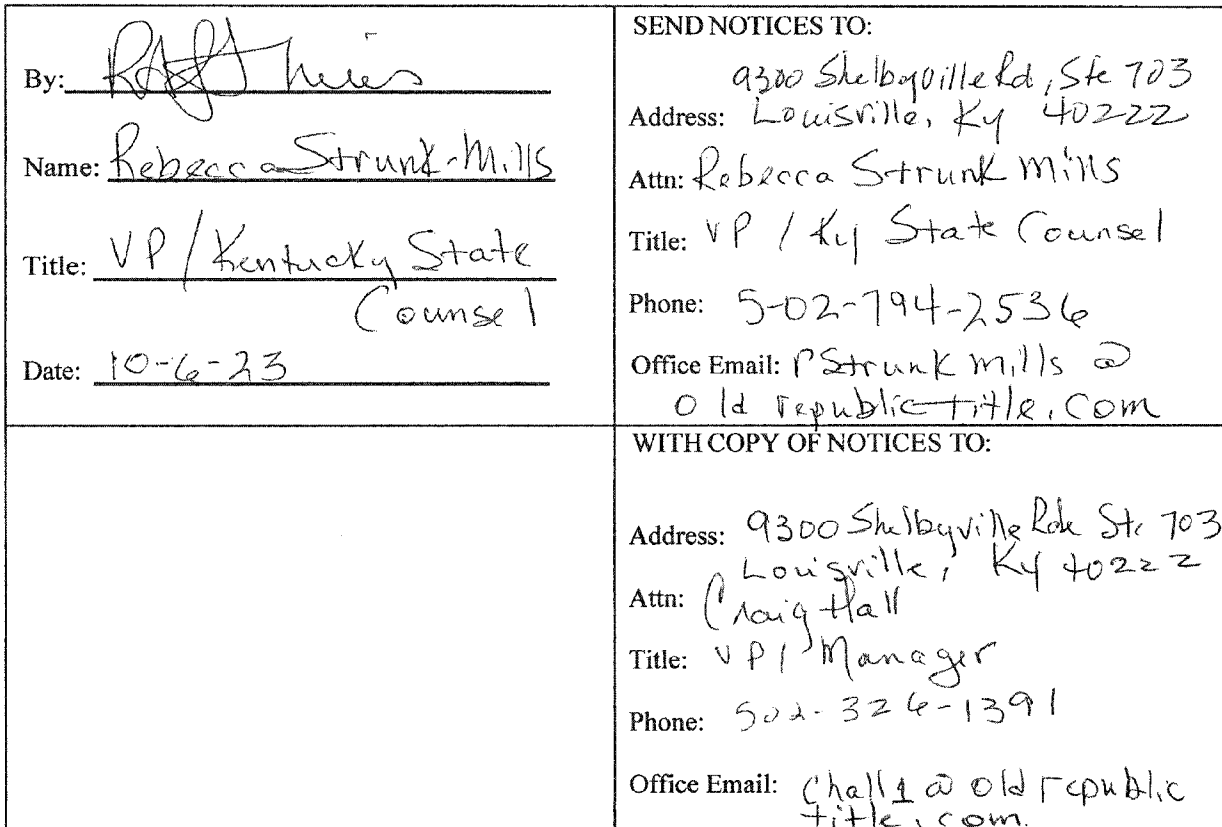 By:
Name: Rebecca Strunk-Mills
Title: VP / Kentucky State
Counsel
Date: 10-6-23
SEND NOTICES TO:
9300 Shelbyville Rd, Ste 703
Address: Louisville, Ky 40222
Attn: Rebecca Strunk Mills
Title: VP / Ky State Counsel
Phone: 502-794-2536
Office Email: rstrunkmills@
oldrepublictitle.com
WITH COPY OF NOTICES TO:
Address: 9300 Shelbyville Ste 703
Louisville, Ky 40222
Attn: Craig Hall
Title: VP / Manager
Phone: 502-326-1391
Office Email: chall1@oldrepublic
title.com